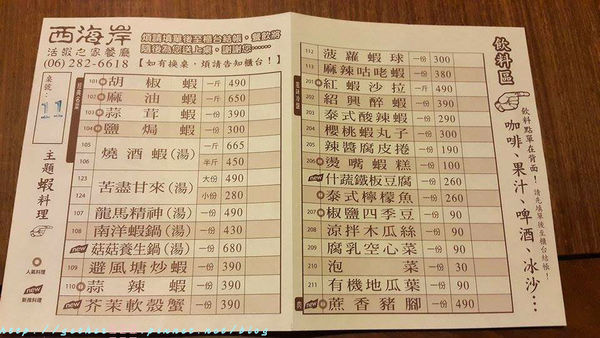 西海岸
活蝦之家餐廳
(06) 282-6618
煩請填單後至櫃台結帳,餐飲將
隨後為您送上桌,謝謝您……
【如有換桌,煩請告知櫃台!】
桌號:
11
主題蝦料理
人氣料理
new 新推料理
101 胡椒蝦 一斤 490
102 麻油蝦 一斤 650
103 蒜茸蝦 一份 390
104 鹽焗蝦 一份 300
105 燒酒蝦(湯) 一斤 665
106 半斤 450
123 苦盡甘來(湯) 大份 490
124 小份 280
107 龍馬精神(湯) 一份 490
108 南洋蝦鍋(湯) 一份 430
new 菇菇養生鍋(湯) 一份 680
109 避風塘炒蝦 一份 390
110 蒜辣蝦 一份 390
new 芥茉軟殼蟹 一份 390
112 菠蘿蝦球 一份 300
113 麻辣咕咾蝦 一份 380
201 紅蝦沙拉 一斤 490
202 紹興醉蝦 一份 390
203 泰式酸辣蝦 一份 290
204 櫻桃蝦丸子 一份 300
205 辣醬腐皮捲 一份 190
206 燙嘴蝦糕 一份 100
new 什蔬鐵板豆腐 一份 260
泰式檸檬魚 一份 260
207 椒鹽四季豆 一份 90
208 涼拌木瓜絲 一份 90
209 腐乳空心菜 一份 90
210 泡菜 一份 30
211 有機地瓜葉 一份 90
new 蔗香豬腳 一份 490
飲料區
飲料點單在背面!請先填單後至櫃台結帳!
咖啡、果汁、啤酒、冰沙…